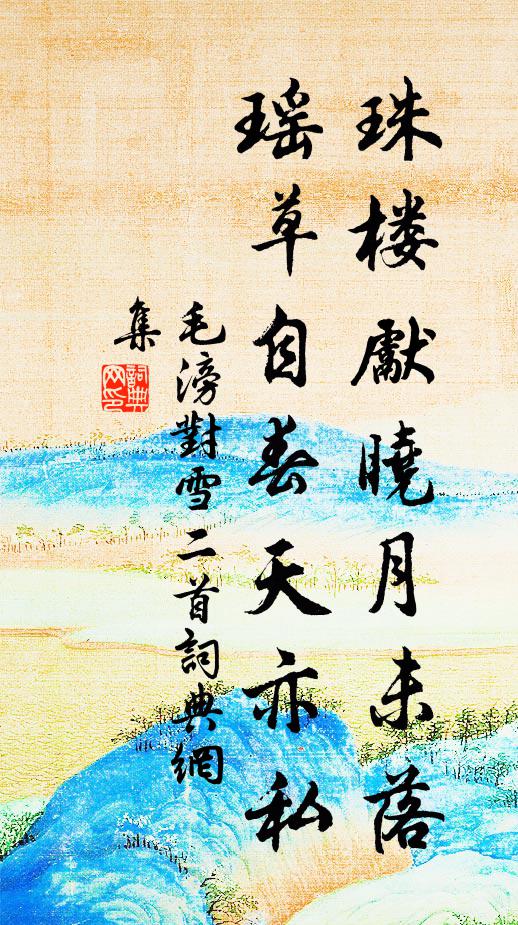 珠楼獻曉月未落
瑶草自春天亦私
毛滂對雪二首詞典網
集
詞典
网印